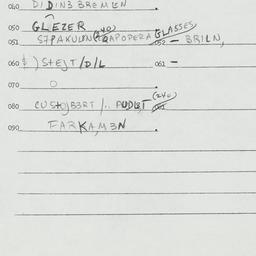 040 DIDINB BREMEN
050 GLEZER
051 STPAKULN(240)RAPOPERA GLASSES 052 - BRILN,
060 $ ) STEJT/D/L 061 -
070 O
080 CUSTOJBERT /.. AUDLT (240) 081
090 FARKA,M3N